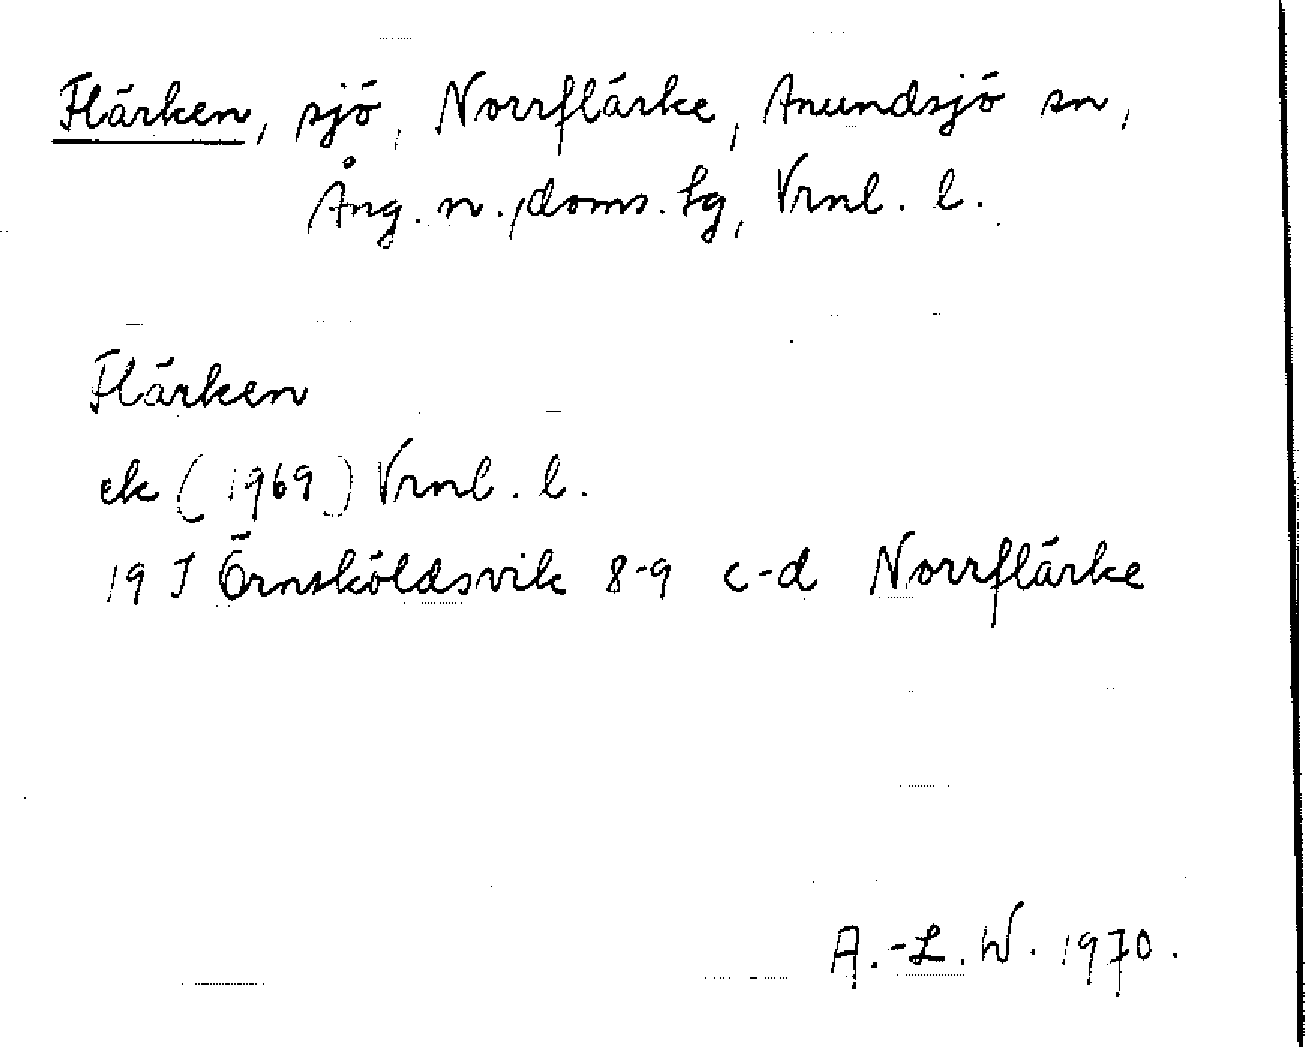 Flärken, sjö, Norrflärke, Anundsjö sn,
Ång. n. doms. lg, Vrnl. l.
Flärken
ek (1969) Vrnl. l.
19 J Örnsköldsvik 8-9 c-d Norrflärke
A.-L. W. 1970.